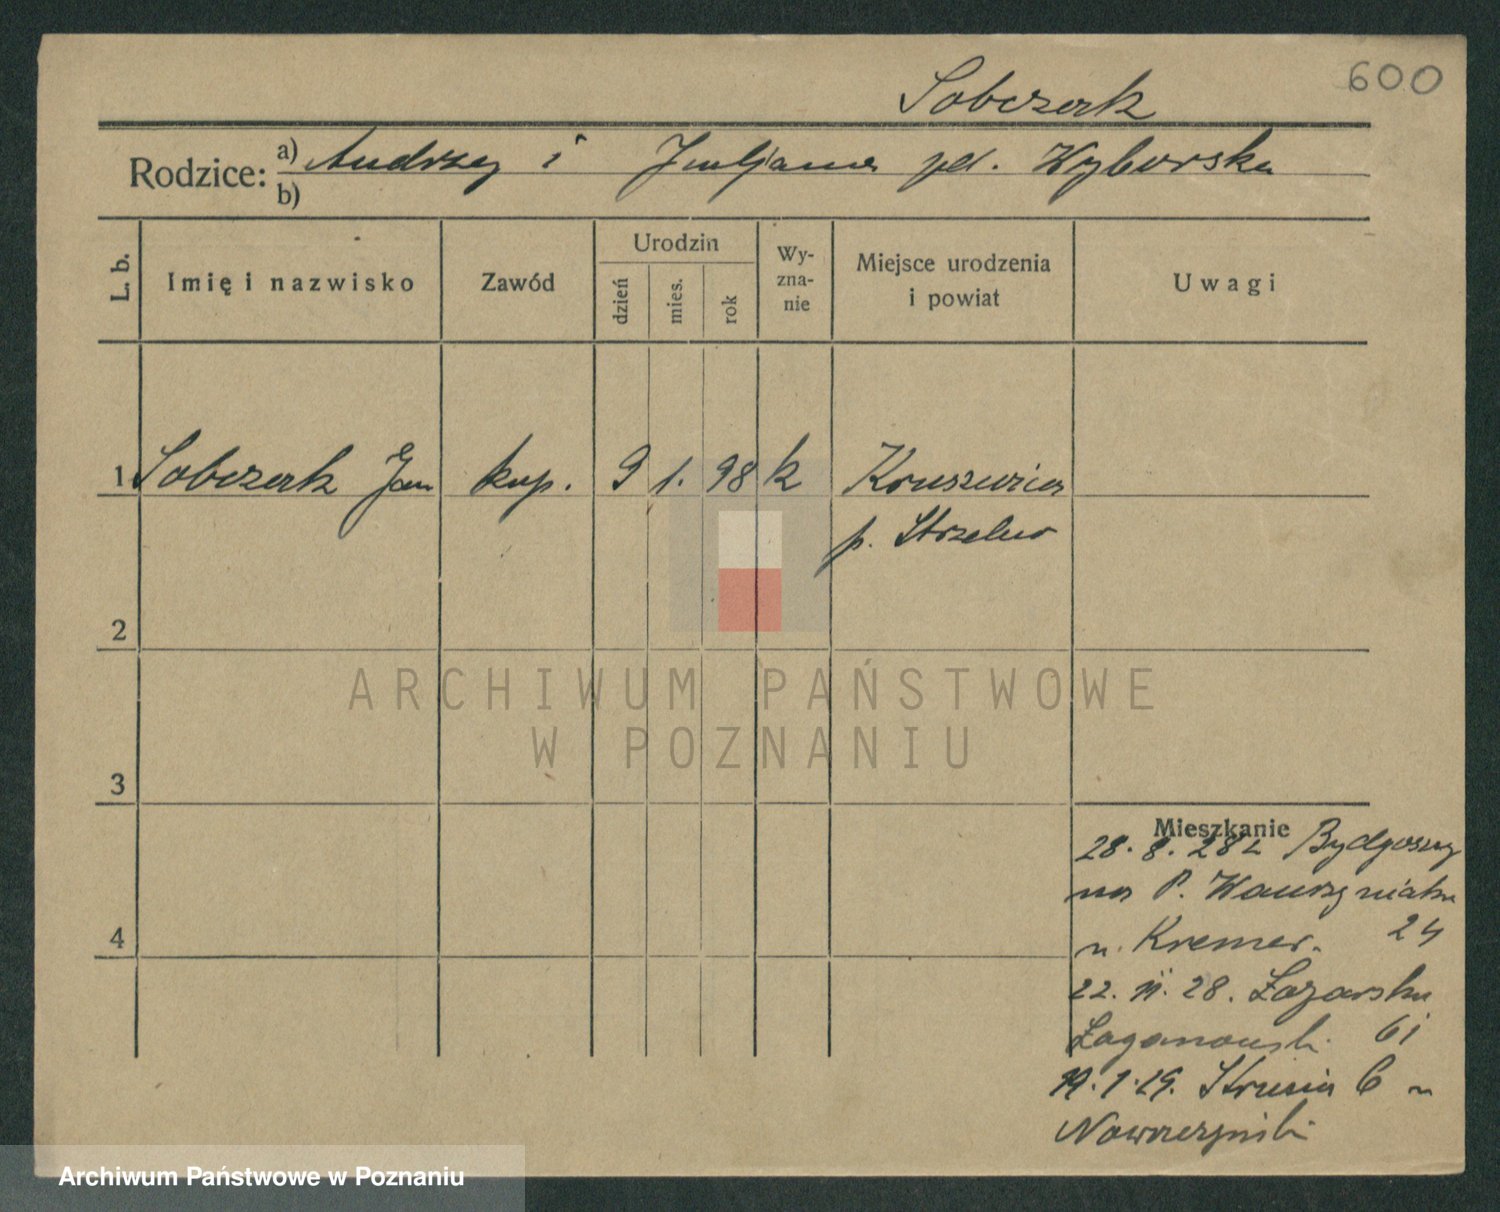 600
Sobczak
Rodzice: a) Andrzej i Juljana zd. Wyborska
b)
L. b. Imię i nazwisko Zawód Urodzin dzień mies. rok Wy-zna-nie Miejsce urodzenia i powiat Uwagi
1 Sobczak Jan kup. 9 1. 98 k Kruszwica
p. Strzelno
2
ARCHIWUM PAŃSTWOWE
W POZNANIU
3
Mieszkanie
28. 8. 28 z Bydgoszczy
na P. Wawrzyniaka
u. Kremer. 24
22. 11. 28. Łazarska
Łaganowski 61
4
19. 1. 29. Strusia 6 u
Archiwum Państwowe w Poznaniu